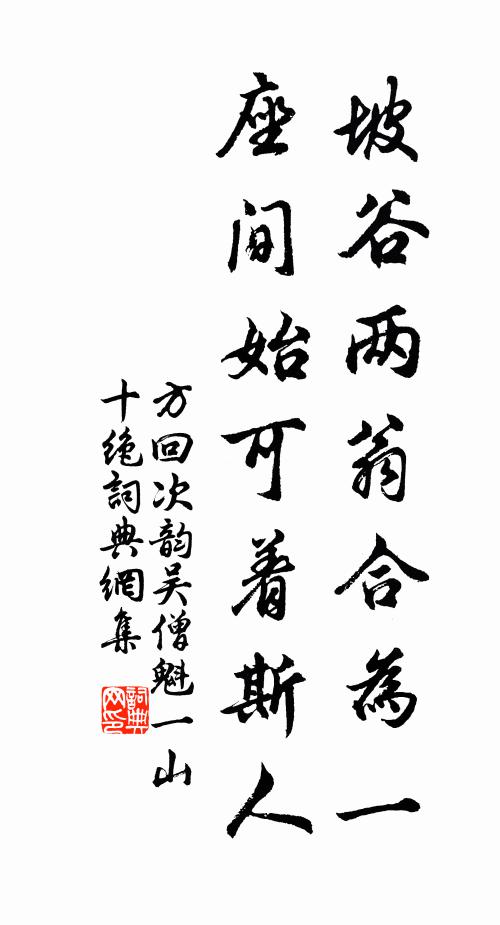 坡谷两翁合為一
座间始可着斯人
方回次韵吴僧魁一山
十绝詞典網集
詞典网印